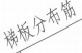 梯板分布筋